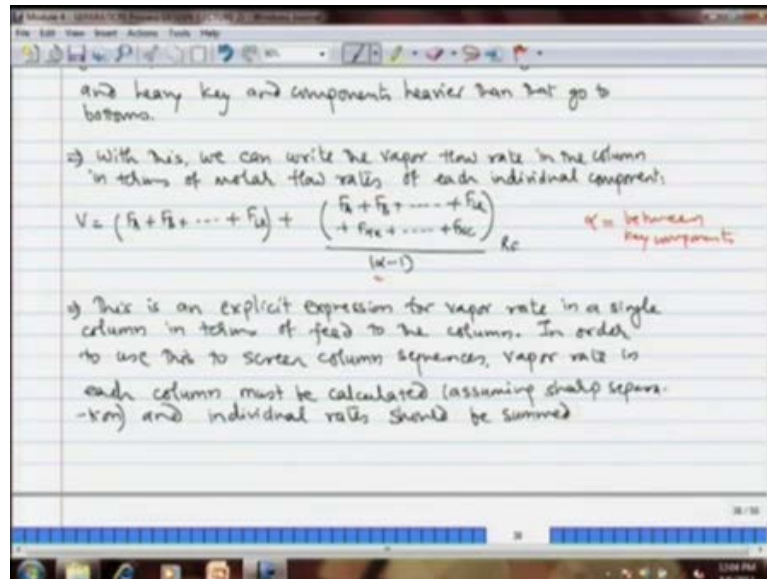 Module 4 - SEPARATION Process DESIGN (LECTURE 2) - Windows Journal
File Edit View Insert Actions Tools Help
and heavy key and components heavier than that go to
bottoms.
⇒ With this, we can write the vapor flow rate in the column
in terms of molar flow rates of each individual component:
V = (F_A + F_B + ---- + F_LK) + (F_A + F_B + ---- + F_LK + F_HK + ---- + F_NC) / (α-1) R_F
α = between
key components
⇒ This is an explicit expression for vapor rate in a single
column in terms of feed to the column. In order
to use this to screen column sequences, vapor rate in
each column must be calculated (assuming sharp separa-
-tion) and individual rates should be summed
38 / 50
38